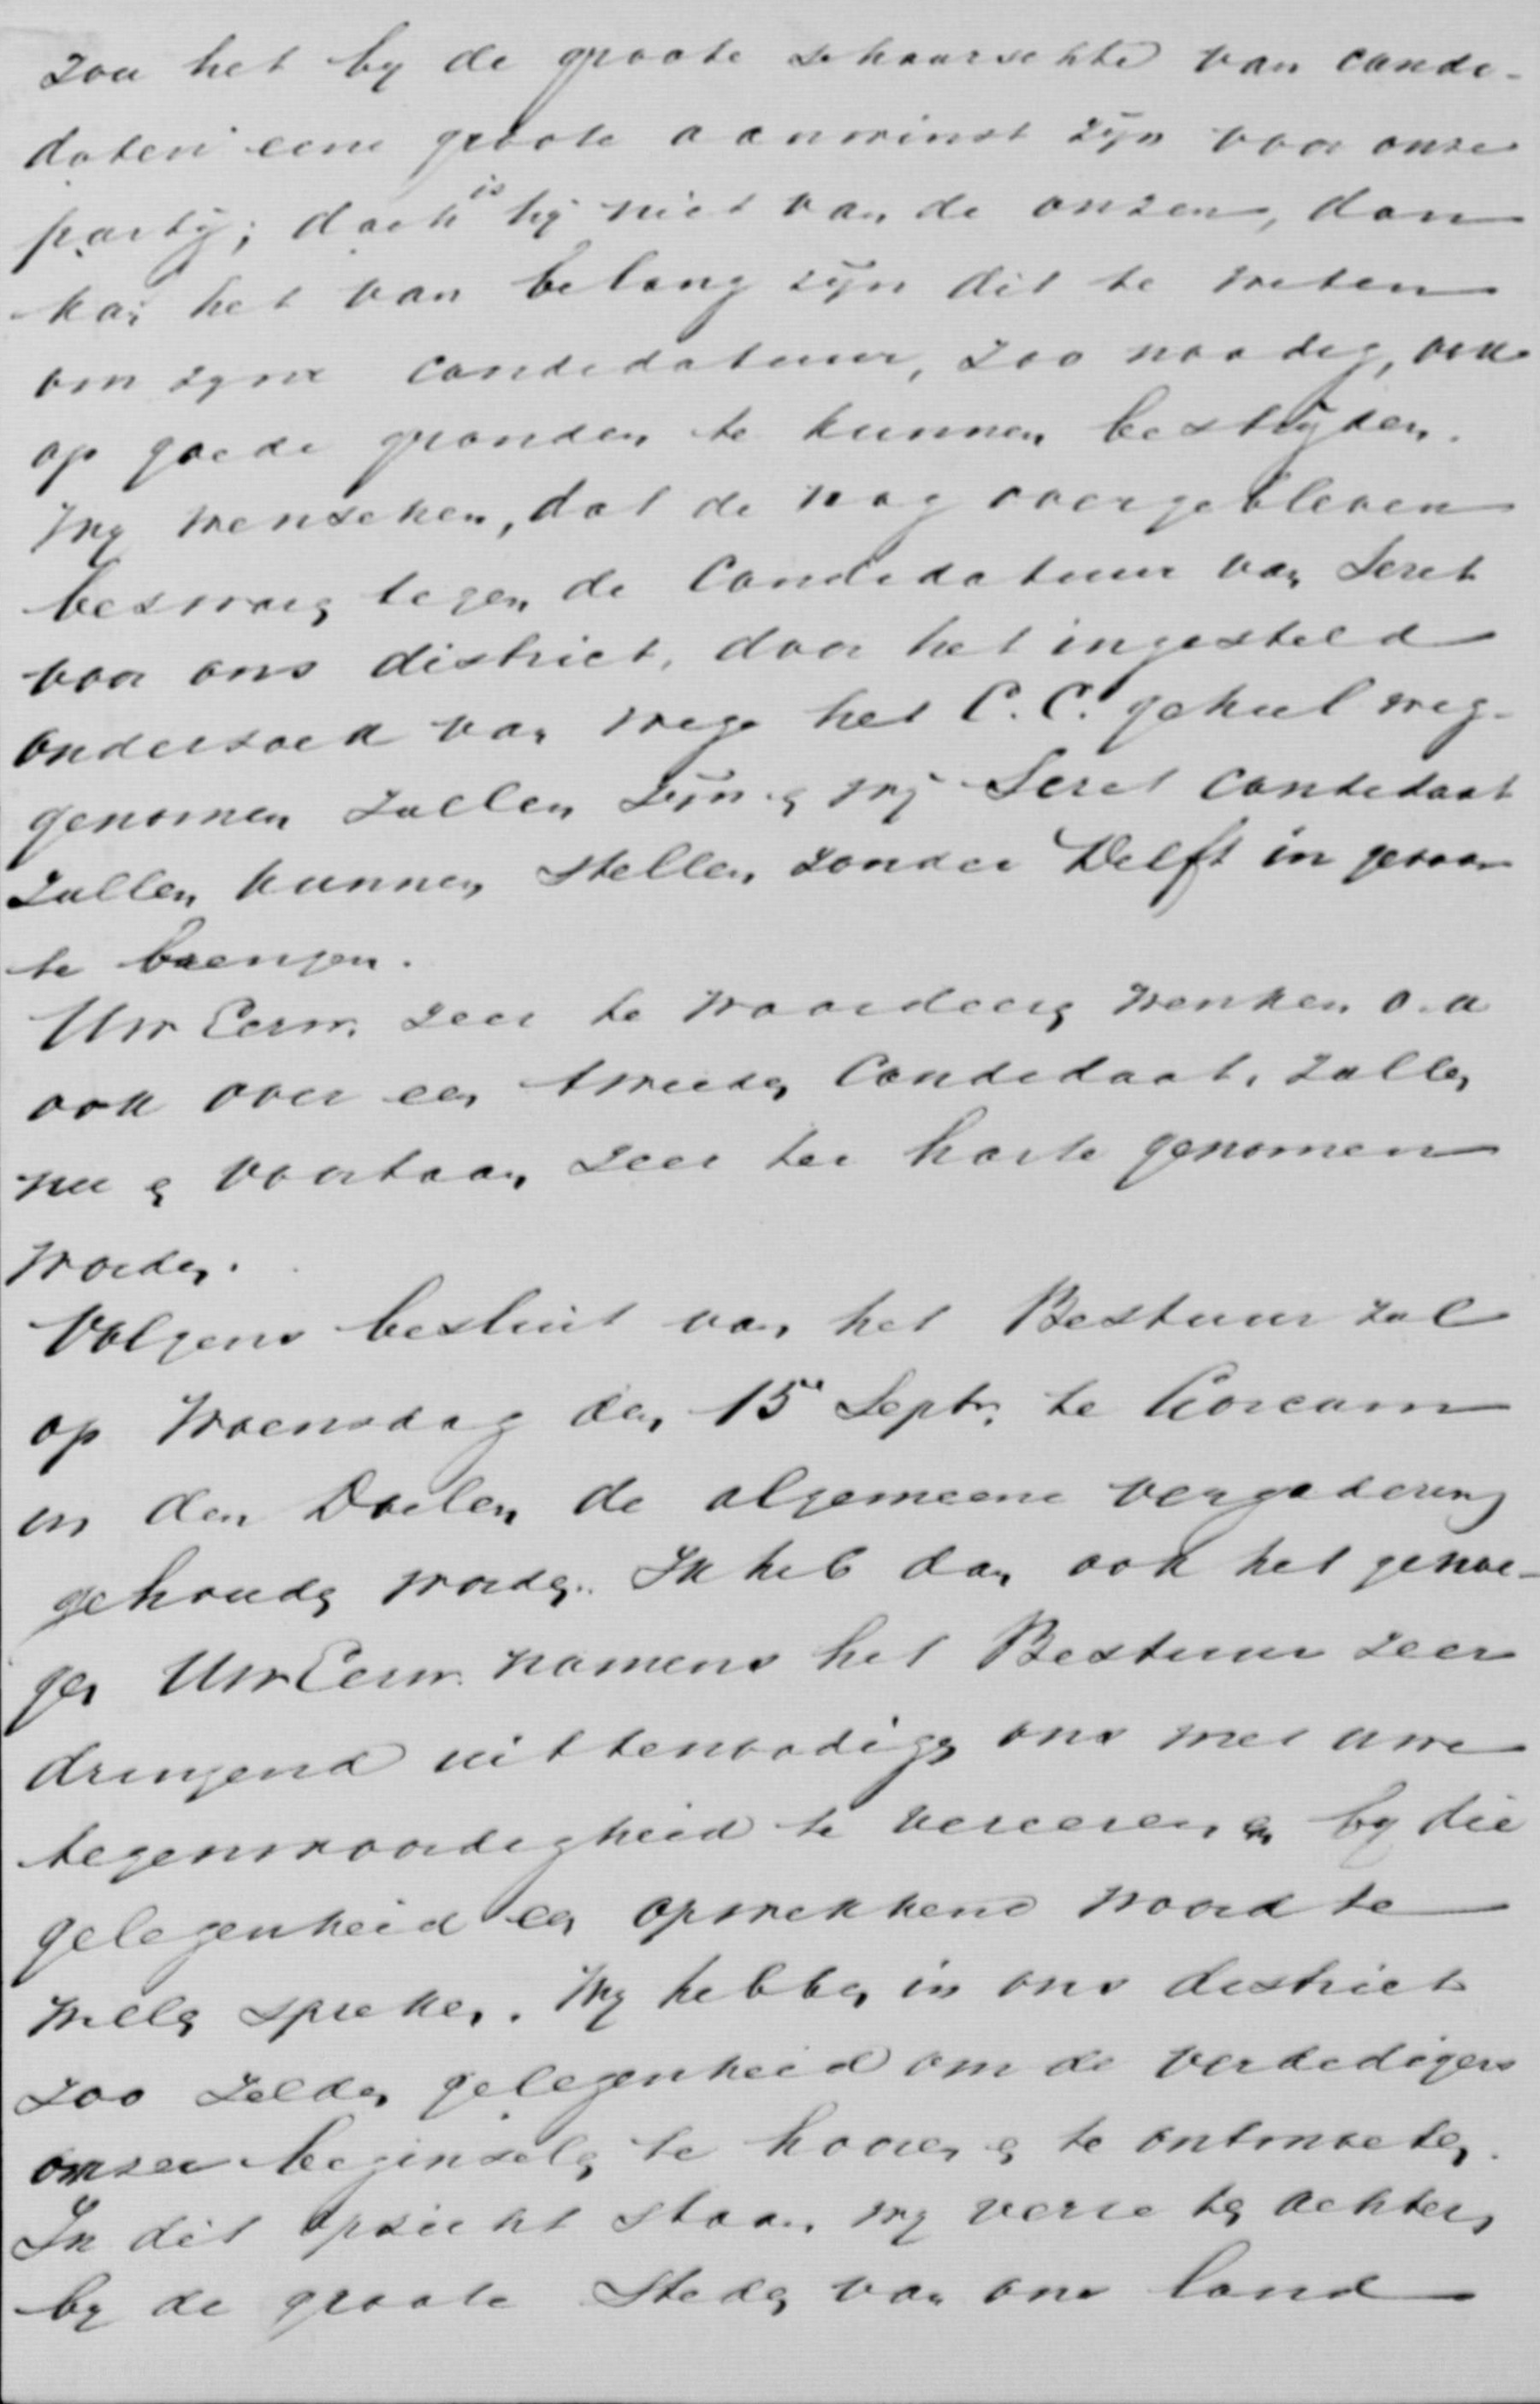 zou het by de groote schaarschte van candi-
daten eene groote aanwinst zijn voor onze
partij; doch is hij niet van de onzen, dan
kan het van belang zijn dit te weten
om zyne candidatuur, zoo noodig, ook
op goede gronden te kunnen bestrijden.
Wy wenschen, dat de nog overgebleven
bezwaren tegen de Candidatuur van Seret
voor ons district, door het ingesteld
onderzoek van wege het C. C. geheel weg-
genomen zullen zijn en wij Seret candidaat
zullen kunnen stellen zonder Delft in gevaar
te brengen.
Uw Eerw. zeer te waardeeren wenken o.a
ook over een tweeden Candidaat, zullen
nu en voortaan zeer ter harte genomen
worden.
Volgens besluit van het Bestuur zal
op Woensdag den 15e Septr. te Gorcum
in den Doelen de algemeene vergadering
gehouden worden. Ik heb dan ook het genoe-
gen Uw Eerw. namens het Bestuur zeer
dringend uittenoodigen ons met uwe
tegenwoordigheid te vereeren en by die
gelegenheid een opwekkend woord te
willen spreken. Wy hebben in ons district
zoo zelden gelegenheid om de verdedigers
onzer beginselen te hooren en te ontmoeten.
In dit opzicht staan wy verre ten achteren
by de groote Steden van ons land